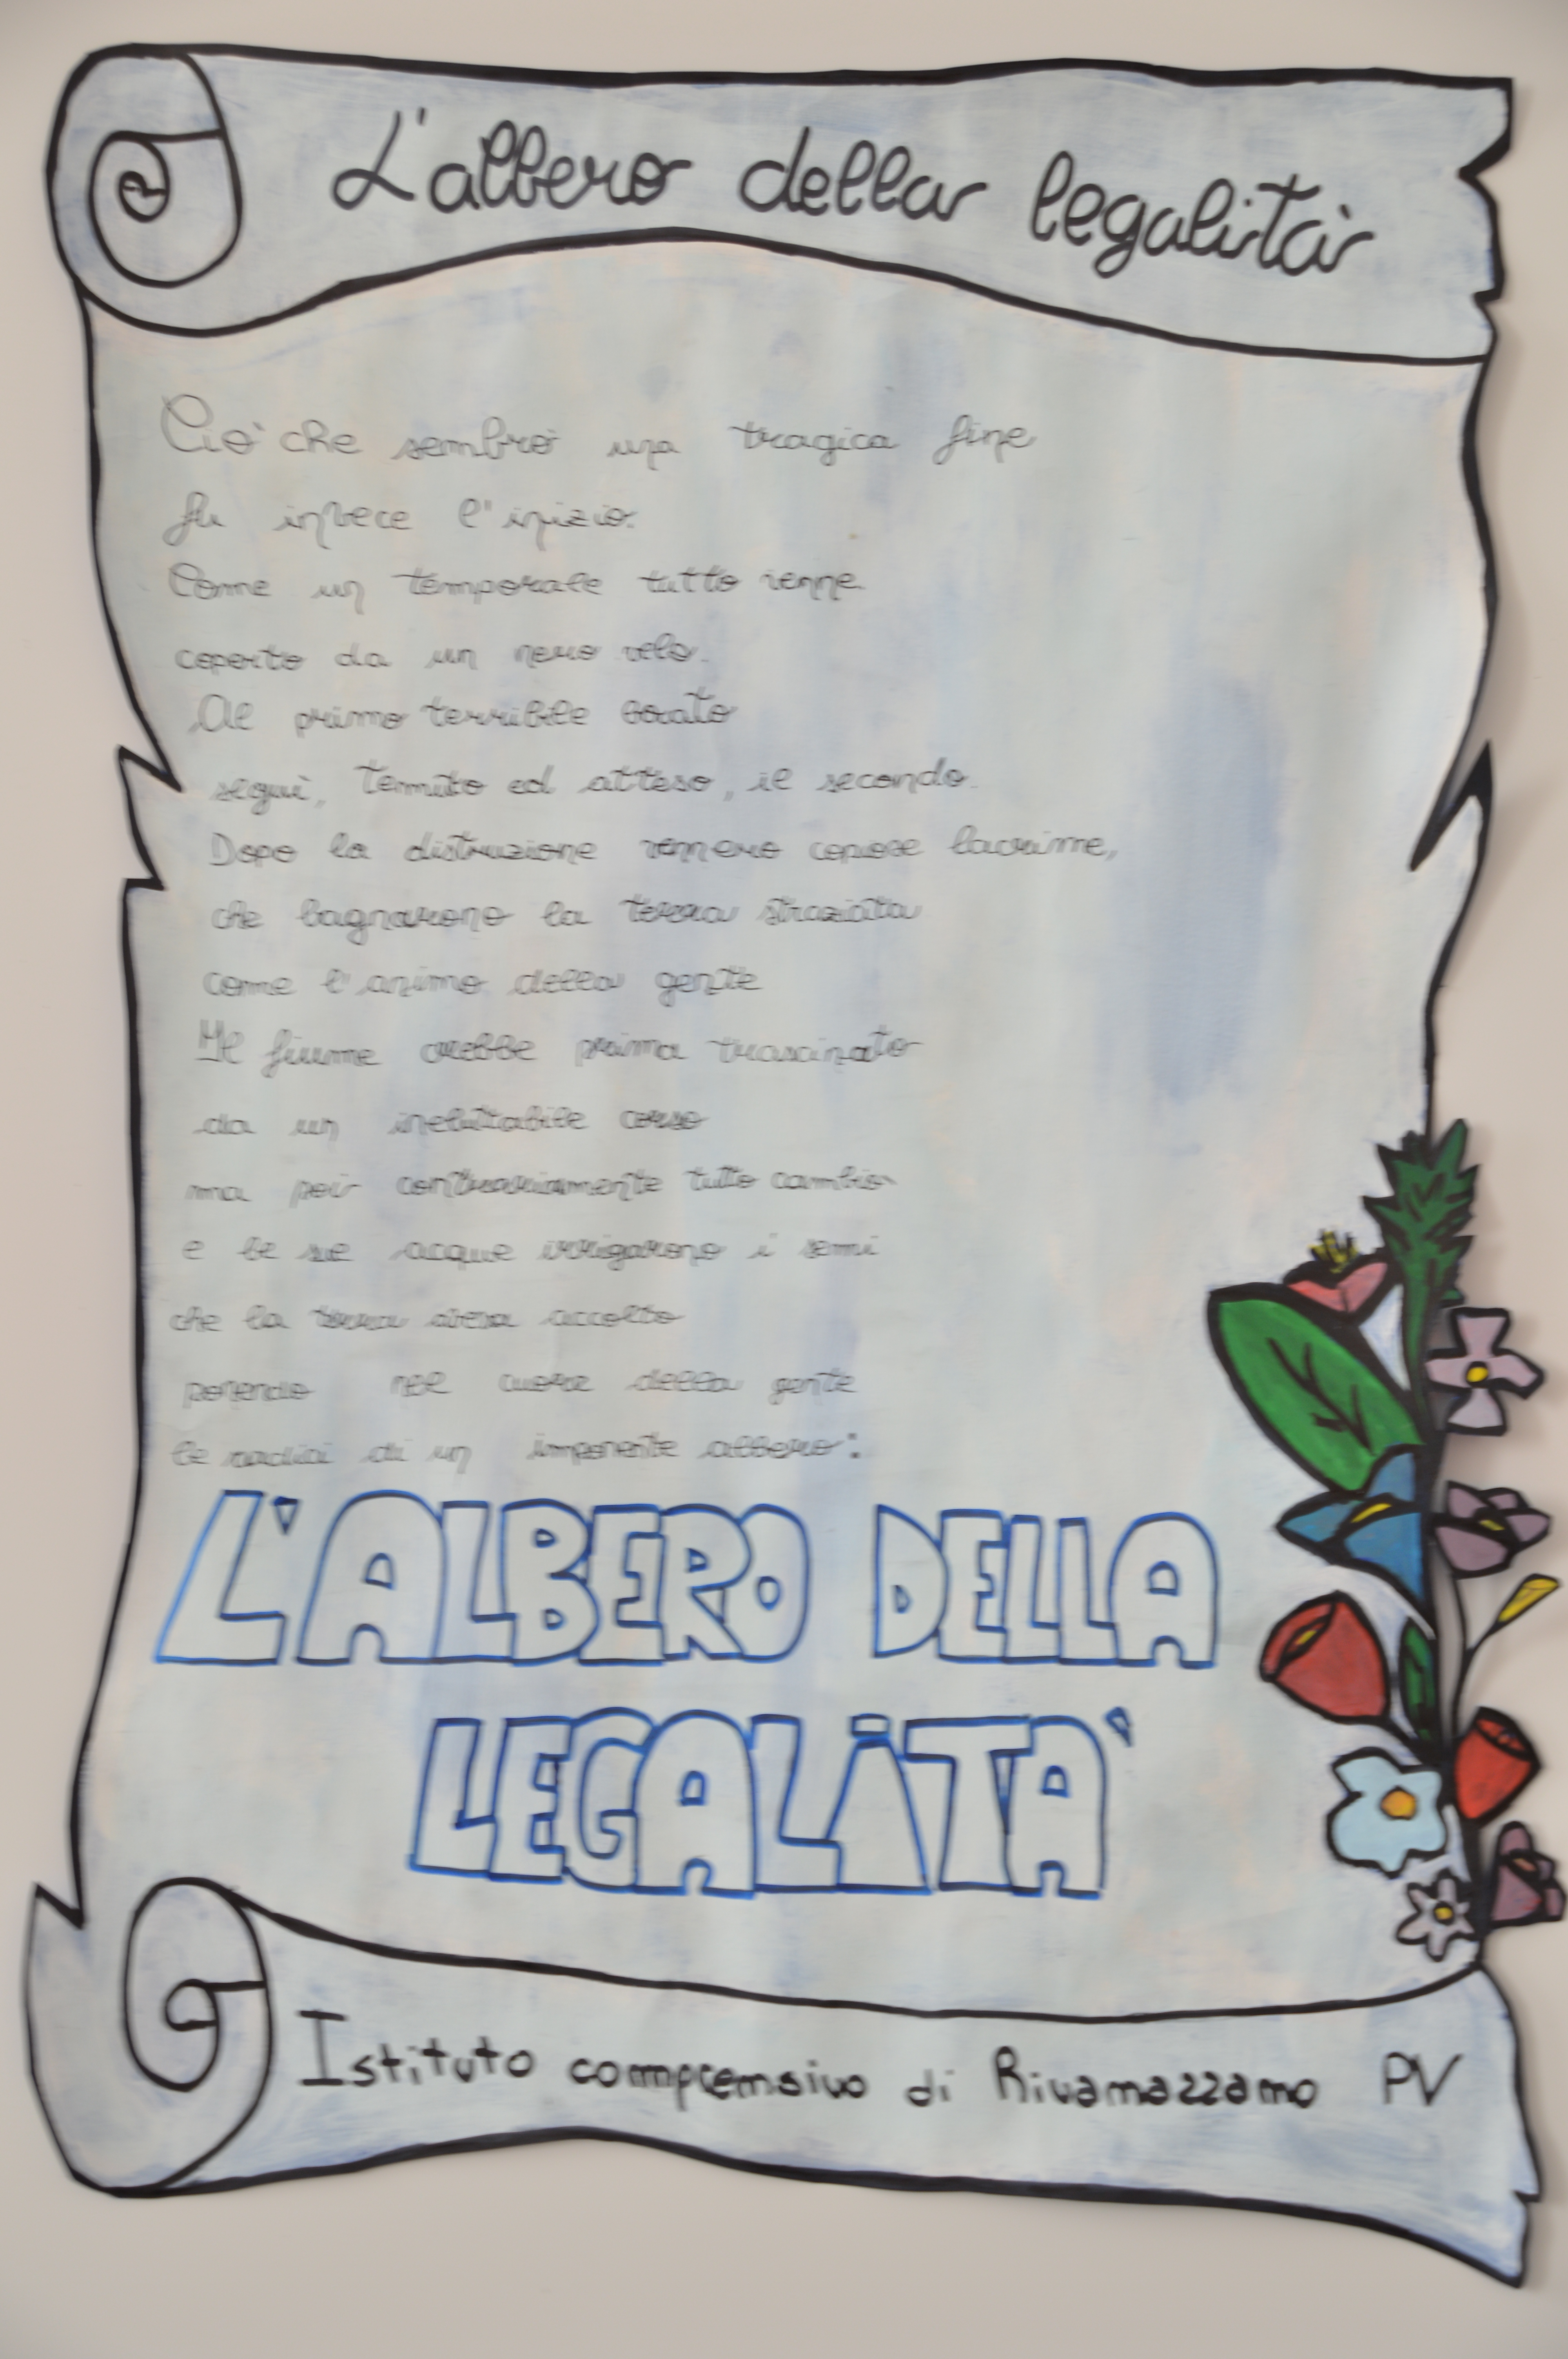 L'albero della legalità
Ciò che sembrò una tragica fine
fu invece l'inizio.
Come un temporale tutto venne
coperto da un nero velo.
Al primo terribile boato
seguì, temuto ed atteso, il secondo.
Dopo la distruzione vennero copiose lacrime,
che bagnarono la terra straziata
come l'animo della gente
Il fiume crebbe prima trascinato
da un ineluttabile corso
ma poi contrariamente tutto cambiò
e le sue acque irrigarono i semi
che la terra aveva accolto
ponendo nel cuore della gente
le radici di un imponente albero:
L'ALBERO DELLA
LEGALITA'
Istituto comprensivo di Rivanazzano PV